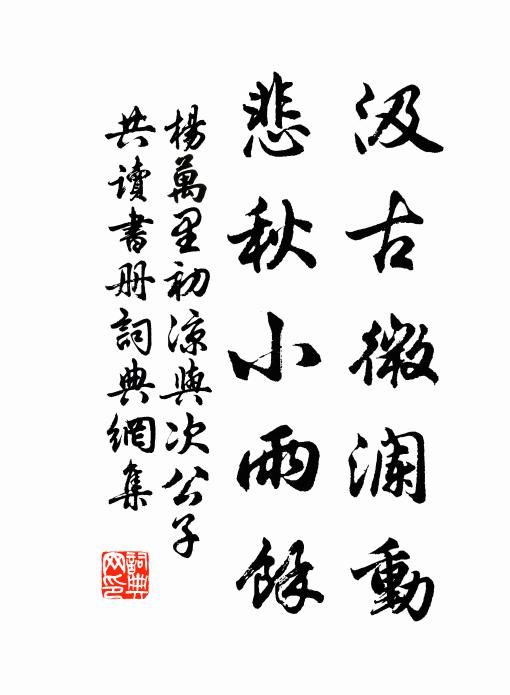 汲古微澜動
悲秋小雨餘
楊萬里初涼與次公子
共讀書册詞典網集
詞典网印